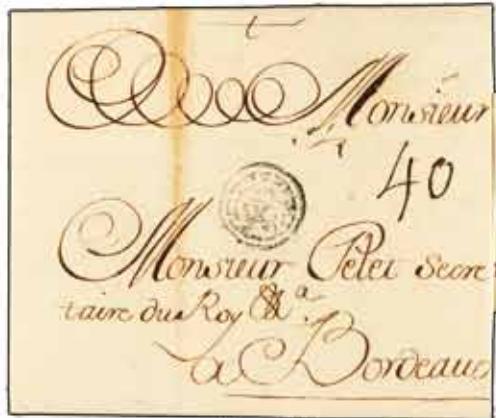 Monsieur
40
Monsieur Pelet Secre
taire du Roy &a.
a Bordeaux